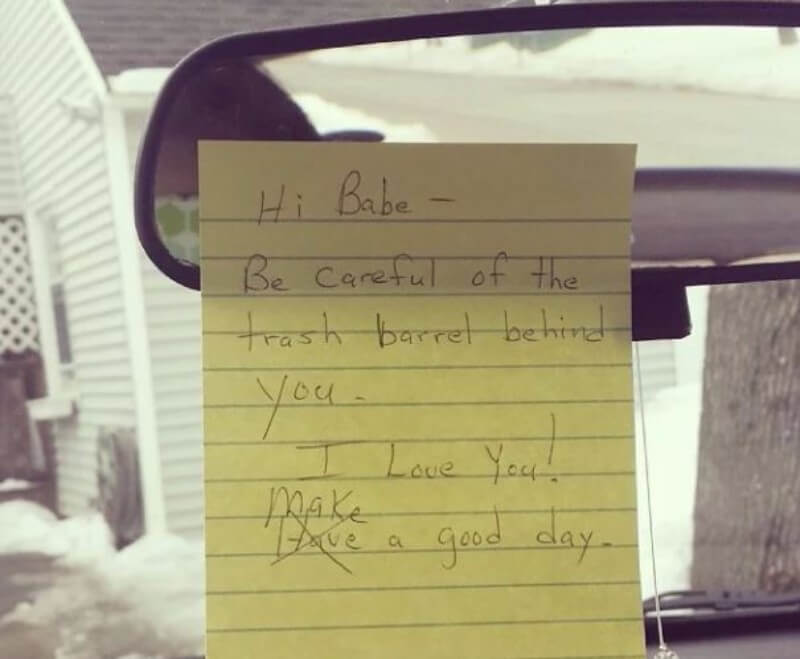 Hi Babe -
Be careful of the
trash barrel behind
you.
I Love You!
Make
Have a good day.